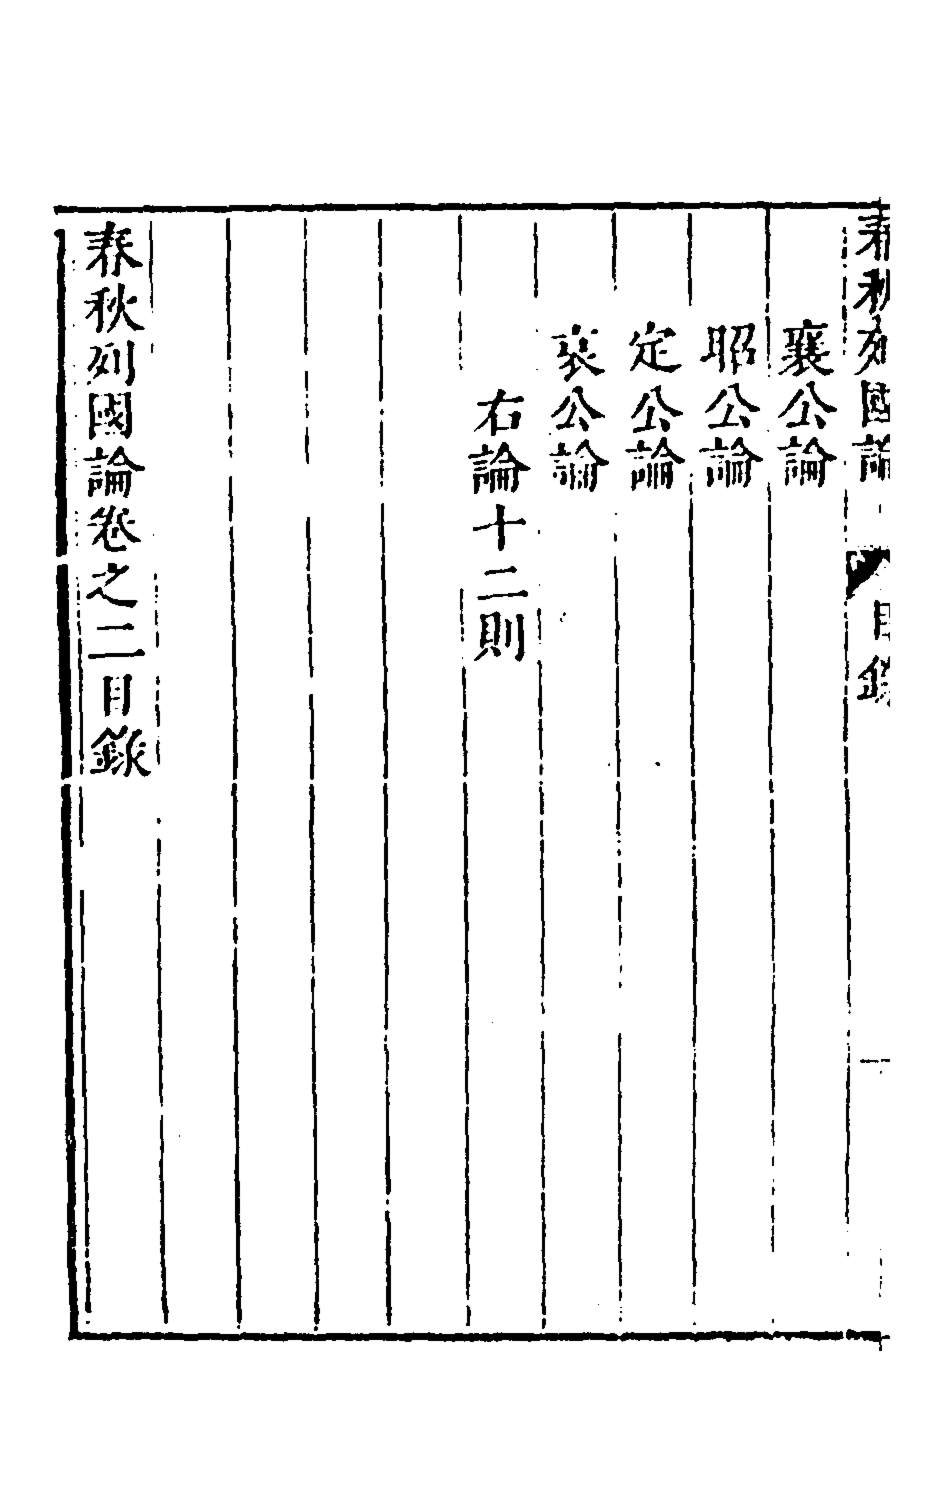 春秋列國論 目錄 一
襄公論
昭公論
定公論
哀公論
右論十二則
春秋列國論卷之二目錄